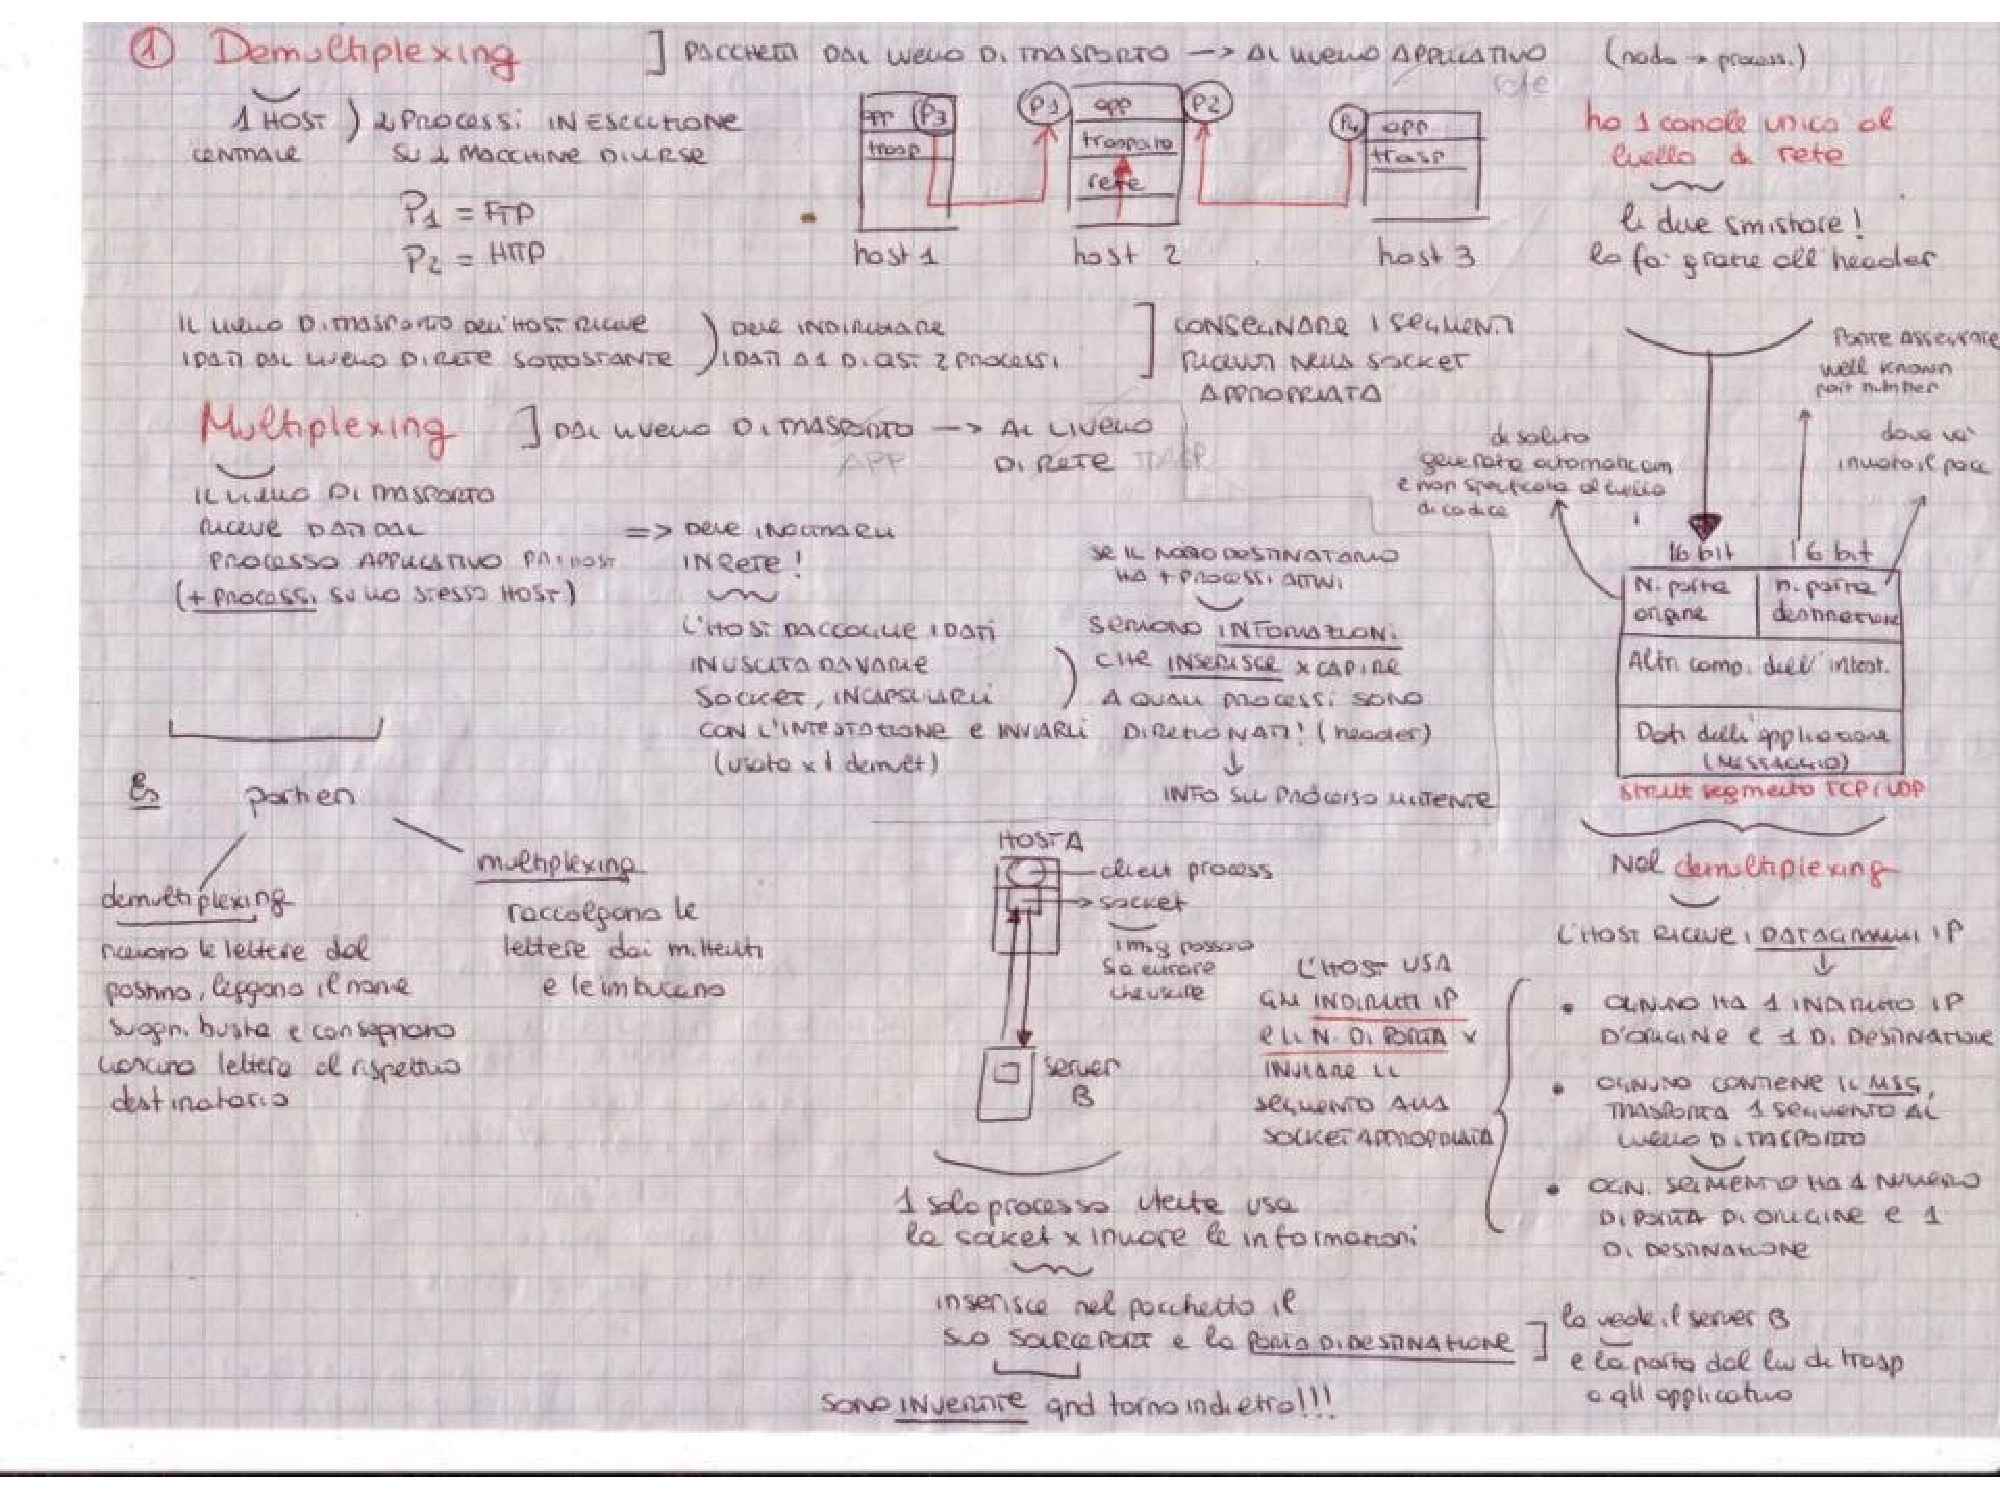 ① Demultiplexing ] PACCHETTI DAL LIVELLO DI TRASPORTO → AL LIVELLO APPLICATIVO (nodo → process.)
rete
1 HOST ) 2 PROCESSI IN ESECUZIONE
CENTRALE SU 2 MACCHINE DIVERSE
P1 = FTP
P2 = HTTP
app P3
trasp
host 1
P1 app P2
trasporto
rete
host 2
P4 app
trasp
host 3
ho 1 canale unico al
livello di rete
li deve smistare!
lo fa grazie all'header
IL LIVELLO DI TRASPORTO DELL'HOST RICEVE
I DATI DAL LIVELLO DI RETE SOTTOSTANTE
DEVE INDIRIZZARE
I DATI A 1 DI QST. 2 PROCESSI
CONSEGNARE I SEGMENTI
RICEVUTI NELLA SOCKET
APPROPRIATA
PORTE ASSEGNATE
well known
port number
Multiplexing ] DAL LIVELLO DI TRASPORTO → AL LIVELLO
APP DI RETE TRASP
IL LIVELLO DI TRASPORTO
RICEVE DATI DAL
PROCESSO APPLICATIVO
(+ PROCESSI SULLO STESSO HOST)
=> DEVE INOLTRARLI
IN RETE!
L'HOST RACCOGLIE I DATI
IN USCITA DA VARIE
SOCKET, INCAPSULARLI
CON L'INTESTAZIONE E INVIARLI
(usato x il demult)
SE IL NODO DESTINATARIO
HA + PROCESSI ATTIVI
SERVONO INFORMAZIONI
CHE INSERISCE x CAPIRE
A QUALI PROCESSI SONO
DIREZIONATI! (header)
↓
INFO SUL PROCESSO MITTENTE
di solito
generata automaticam
e non specificata al livello
di codice
dove va'
inviato il pacc
16 bit 16 bit
N. porta
origine
n. porta
destinazione
Altri camp. dell'intest.
Dati dell'applicazione
(MESSAGGIO)
strutt segmento TCP/UDP
Es portieri
demultiplexing
ricevono le lettere dal
postino, leggono il nome
su ogn. busta e consegnano
ciascuna lettera al rispettivo
destinatario
multiplexing
raccolgono le
lettere dai mittenti
e le imbucano
HOST A
client process
socket
i msg possono
sia entrare
che uscire
server
B
L'HOST USA
GLI INDIRIZZI IP
E LI N. DI PORTA x
INVIARE IL
SEGMENTO ALLA
SOCKET APPROPRIATA
Nel demultiplexing
L'HOST RICEVE I DATAGRAMMI IP
↓
• OGNUNO HA 1 INDIRIZZO IP
D'ORIGINE E 1 DI DESTINAZIONE
• OGNUNO CONTIENE IL MSG,
TRASPORTA 1 SEGMENTO AL
LIVELLO DI TRASPORTO
• OGN. SEGMENTO HA 1 NUMERO
DI PORTA DI ORIGINE E 1
DI DESTINAZIONE
1 solo processo utente usa
la socket x inviare le informazioni
inserisce nel pacchetto il
suo SOURCE PORT e la PORTA DI DESTINAZIONE ]
la vede il server B
e la porta dal liv di trasp
a qll applicativo
SONO INVERTITE qnd torno indietro!!!